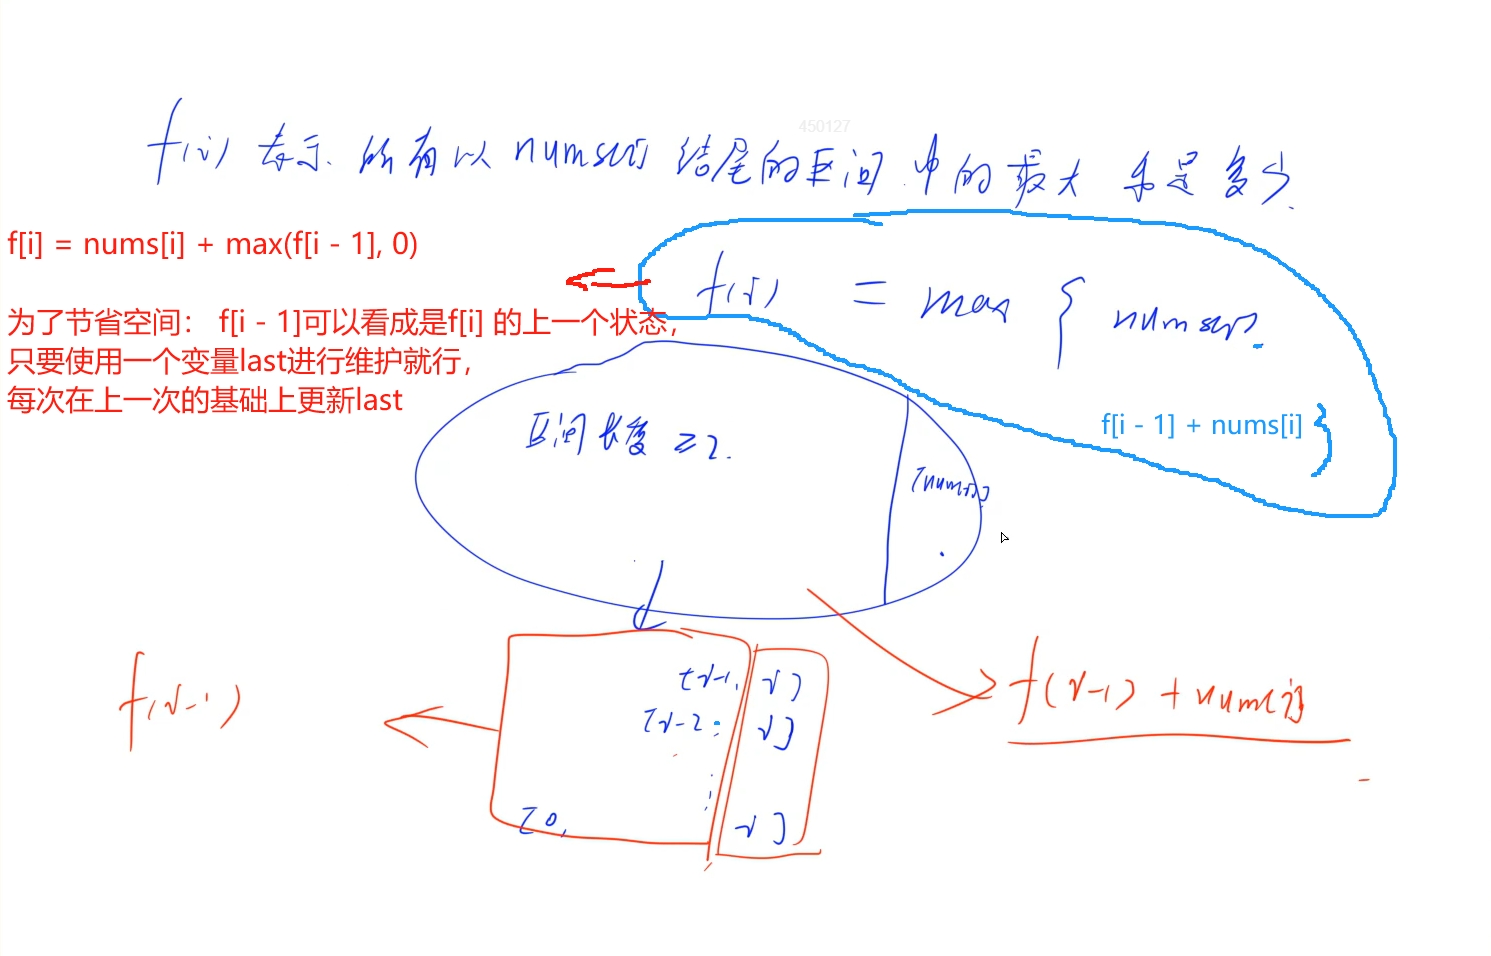 450127
f(i) 表示 所有以 nums[i] 结尾的区间 中的最大 和是多少.
f[i] = nums[i] + max(f[i - 1], 0)
f(i) = max { nums[i].
为了节省空间： f[i - 1]可以看成是f[i] 的上一个状态，
只要使用一个变量last进行维护就行，
每次在上一次的基础上更新last
f[i - 1] + nums[i] }
区间长度 ≥2.
[nums[i]]
[i-1, i]
[i-2, i]
[0, i]
f(i-1)
f(i-1) + nums[i]